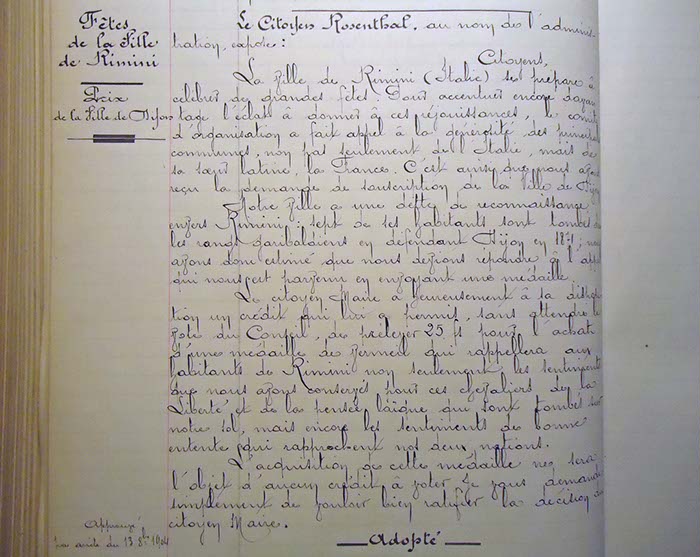 Fêtes
de la Ville
de Rimini
Prix
de la Ville de Dijon
Le Citoyen Rosenthal, au nom de l'adminis-
tration, expose :
Citoyens,
La Ville de Rimini (Italie) se prépare à
célébrer de grandes fêtes. Pour accentuer encore davan
tage l'éclat à donner à ces réjouissances, le comité
d'organisation a fait appel à la générosité des principales
communes, non pas seulement de l'Italie, mais de
sa sœur latine, la France. C'est ainsi que nous avons
reçu la demande de souscription de la Ville de
Notre Ville a une dette de reconnaissance
envers Rimini : sept de ses habitants sont tombés dans
les rangs garibaldiens en défendant Dijon en 1871 ; nous
avons donc estimé que nous devions répondre à l'appel
qui nous est parvenu en envoyant une médaille.
Le citoyen Maire a généreusement à sa disposi
tion un crédit qui lui a permis, sans attendre le
Vote du Conseil, de prélever 25 fs pour l'achat
d'une médaille de vermeil qui rappellera aux
habitants de Rimini non seulement les sentiments
que nous avons conservés pour ces chevaliers de la
Liberté et de la pensée laïque qui sont tombés sur
notre sol, mais encore les sentiments de bonne
entente qui rapprochent nos deux nations.
L'acquisition de cette médaille ne sera
l'objet d'aucun crédit à voter. Je vous demande
simplement de vouloir bien ratifier la décision du
citoyen Maire.
Adopté
Approuvé
par arrêté du 13 8bre 1904